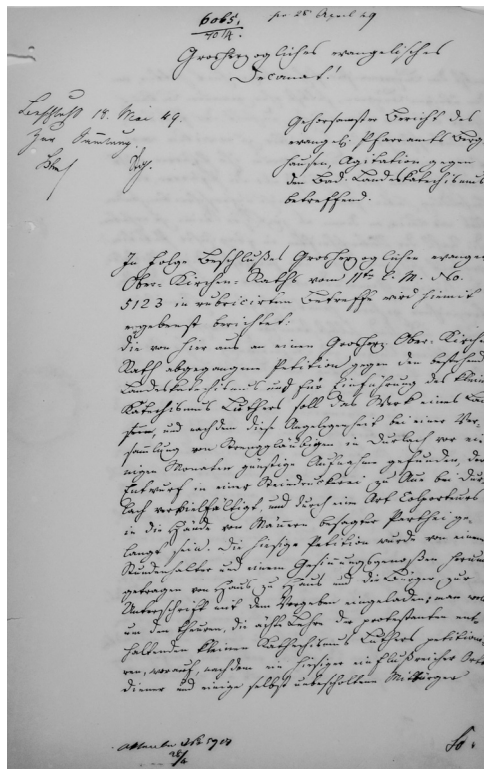 6065.
10/4.
pr 28 April 49
Grosherzogliches evangelisches
Decanat!
Beschluß 18. Mai 49.
Zur Sammlung.
Gehorsamster Bericht des
evangel. Pfarramts Berg
hausen, Agitation gegen
den Bad. Landeskatechismus
betreffend.
In Folge Beschlußes Grosherzoglichen evangel
Ober-Kirchen-Raths vom 11ten l. M. No.
5123 in rubricirtem Betreffe wird hiemit
ergebenst berichtet:
die von hier aus an einen Grosherz. Ober-Kirchen
Rath abgegangene Petition gegen den bestehend
Landeskatechismus und für Einführung des kleinen
Katechismus Luthers soll das Werk eines
und nachdem diese Angelegenheit bei einer Ver-
sammlung von Strenggläubigen in Durlach vor ei
nigen Monaten günstige Aufnahme gefunden, der
Entwurf in einer Steindruckerei zu Aue bei Dur
lach vervielfältigt, und durch eine Art Colporteurs
in die Hände von Männern besagter Parthei ge-
langt sein. Die hiesige Petition wurde von einem
Stundenhalter und einem Gesinnungsgenossen herum
getragen von Haus zu Haus und die Bürger zur
Unterschrift mit dem Vorgeben eingeladen; man wolle
um den theuren, die ächte Lehre der protestanten ent
haltenden kleinen Katechismus Luthers petitioni-
ren, worauf, nachdem ein hiesiger einflußreicher Orts
diener und einige selbst unbescholtene Mitbürger
28/4